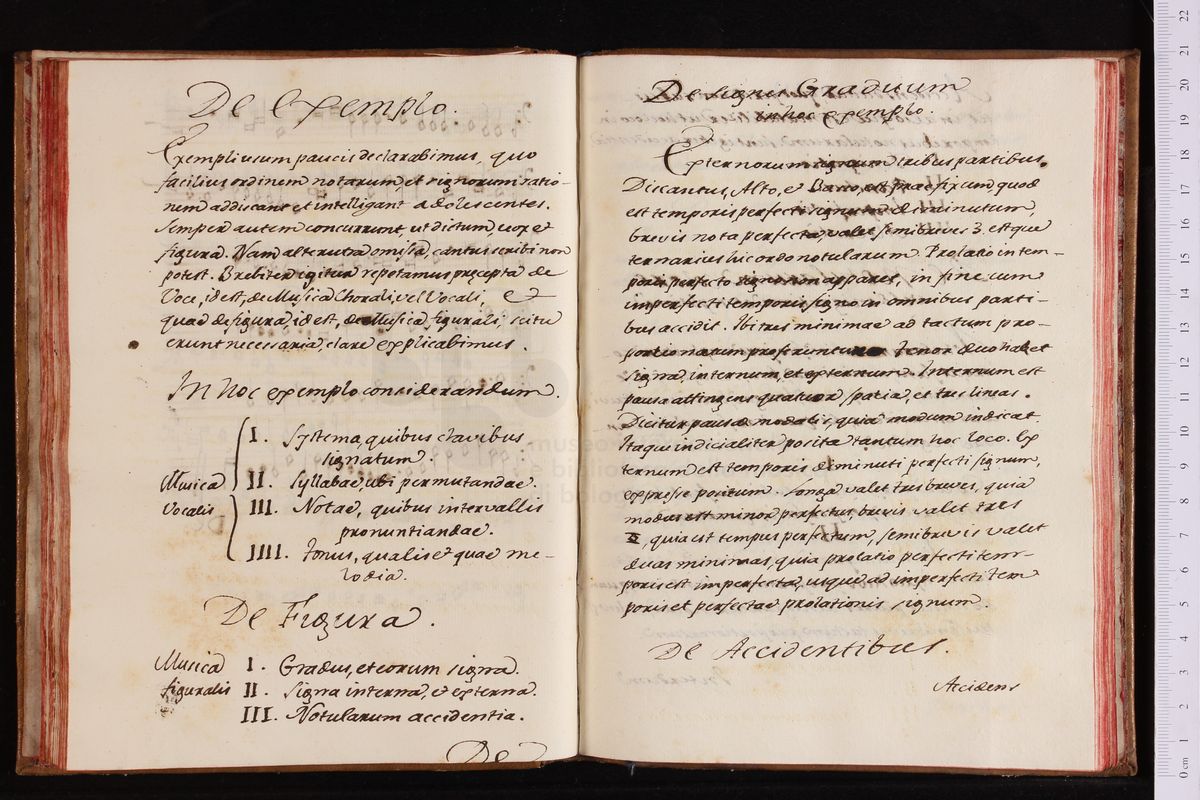 De exemplo.
Exempli usum paucis declarabimus, quo
facilius ordinem notarum, et signorum ratio-
nem addiscant et intelligant adolescentes.
Semper autem concurrunt, ut dictum vox et
figura. Nam alterutra omissa, cantus scribi non
potest. Breviter igitur repetamus præcepta de
Voce, id est, de Musica Chorali, vel Vocali, et
quae de figura id est, de Musica figurali, scitu
erunt necessaria, clare explicabimus.
In hoc exemplo considerandum.
Musica
Vocalis
I. Systema, quibus clavibus
signatum.
II. Syllabae, ubi permutandae.
III. Notae, quibus intervallis
pronuntiandae.
IIII. Tonus, qualis et quae me-
lodia.
De Figura.
Musica
figuralis
I. Gradus, et eorum signa.
II. Signa interna, et externa.
III. Notularum accidentia.
De
De signis Graduum
in hoc exemplo.
Externorum signum tribus partibus,
Discantus, Alto, et Basso, est praefixum, quod
est temporis perfecti signum diminutum,
brevis nota perfecta, valet semibreves 3, estque
ternarius hic ordo notularum. Prolatio in tem-
poris perfecto signo non apparet, in fine cum
imperfecti temporis signo in omnibus parti-
bus accidit. Ibi tres minimae ad tactum pro-
portionatum proferentur. Tenor duo habet
signa, internum, et externum. Internum est
pausa attingens quatuor spatia, et tres lineas.
Dicitur pausa modalis, quia modum indicat.
Itaque indicialiter posita tantum hoc loco. Ex
ternum est temporis diminuti perfecti signum,
expresse positum. Longa valet tres breves, quia
modus est minor perfectus brevis valet tres
, quia est tempus perfectum, semibrevis valet
duas minimas, quia prolatio perfecti tem-
poris est imperfecta, usque ad imperfecti tem
poris et perfectae prolationis signum.
De Accidentibus.
Accidens